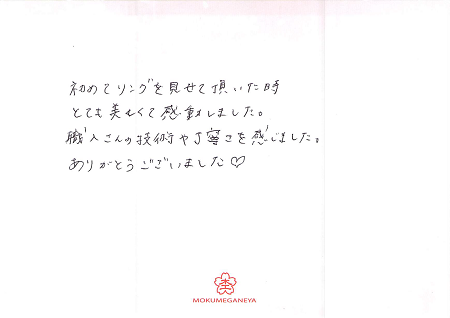 初めてリングを見せて頂いた時
とても美しくて感動しました。
職人さんの技術や丁寧さを感じました。
ありがとうございました♡
MOKUMEGANEYA